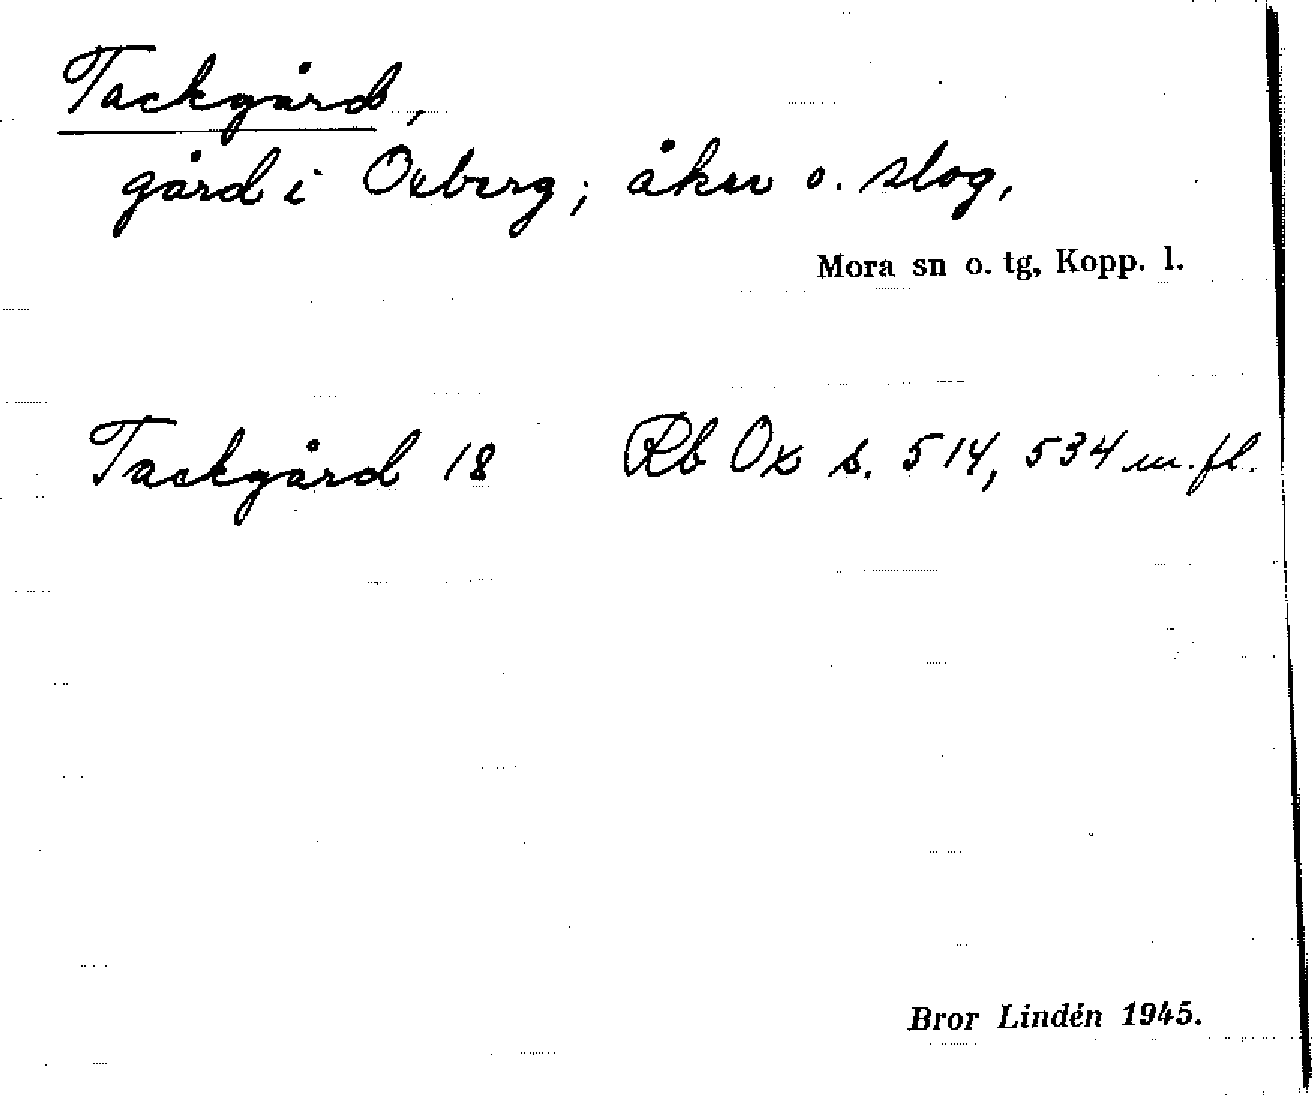 Tackgård,
gård i Oxberg; åker o. slog,
Mora sn o. tg, Kopp. l.
Tackgård 18 Rb Ox s. 514, 534 m. fl.
Bror Lindén 1945.